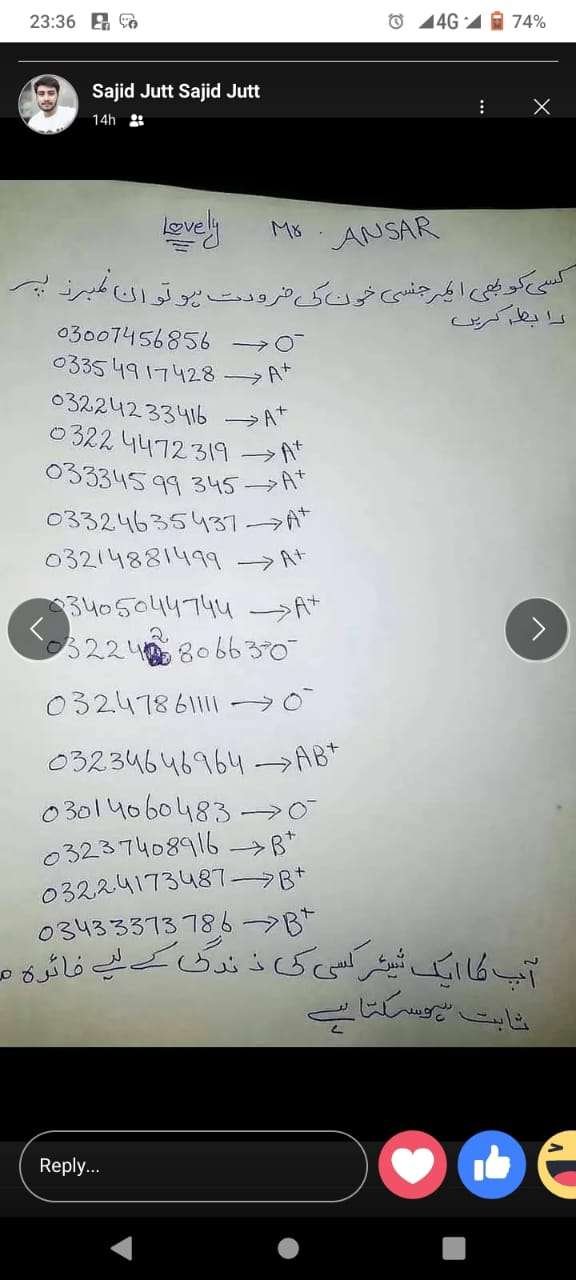 23:36 4G 74%
Sajid Jutt Sajid Jutt
14h
Lovely Mr. ANSAR
کسی کو بھی ایمرجنسی خون کی ضرورت ہو تو ان نمبرز پر
رابطہ کریں
03007456856 → O⁻
03354917428 → A⁺
03224233416 → A⁺
03224472319 → A⁺
03334599345 → A⁺
03324635437 → A⁺
03214881499 → A⁺
03405044744 → A⁺
03224280663 → O⁻
03247861111 → O⁻
03234646964 → AB⁺
03014060483 → O⁻
03237408916 → B⁺
03224173487 → B⁺
03433373786 → B⁺
آپ کا ایک شیئر کسی کی زندگی کے لیے فائدہ
ثابت ہوسکتا ہے
Reply...